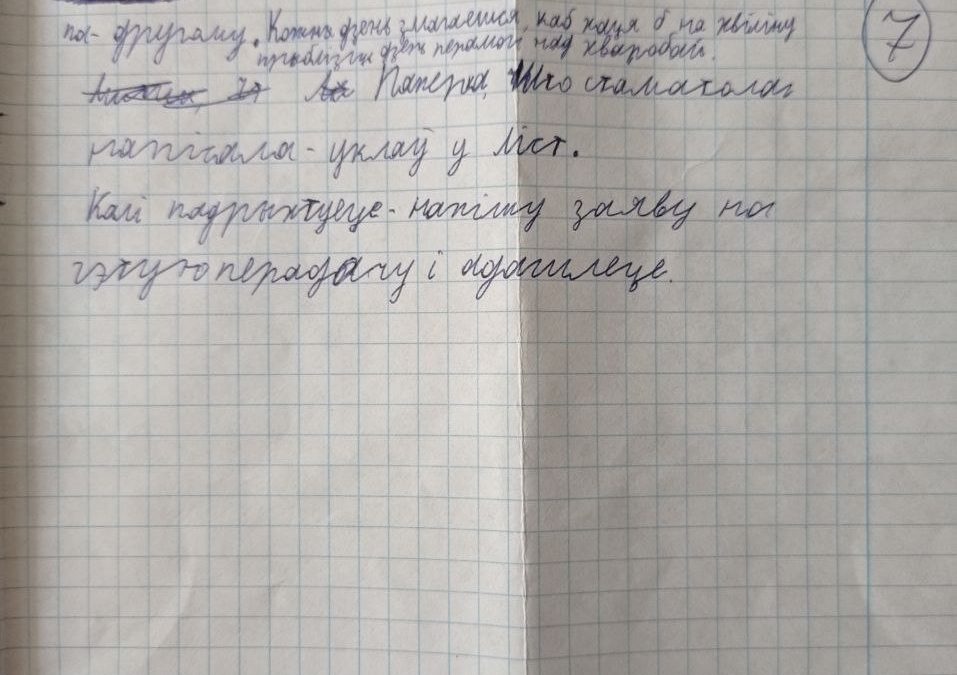 па-другому. Кожны дзень змагаешся, каб хаця б на хвіліну
прыблізіць дзень перамогі над хваробай.
Паперка, што стаматолаг
напісала - уклаў у ліст.
Калі падрыхтуеце - напішу заяву на
гэтую перадачу і адашлеце.
7